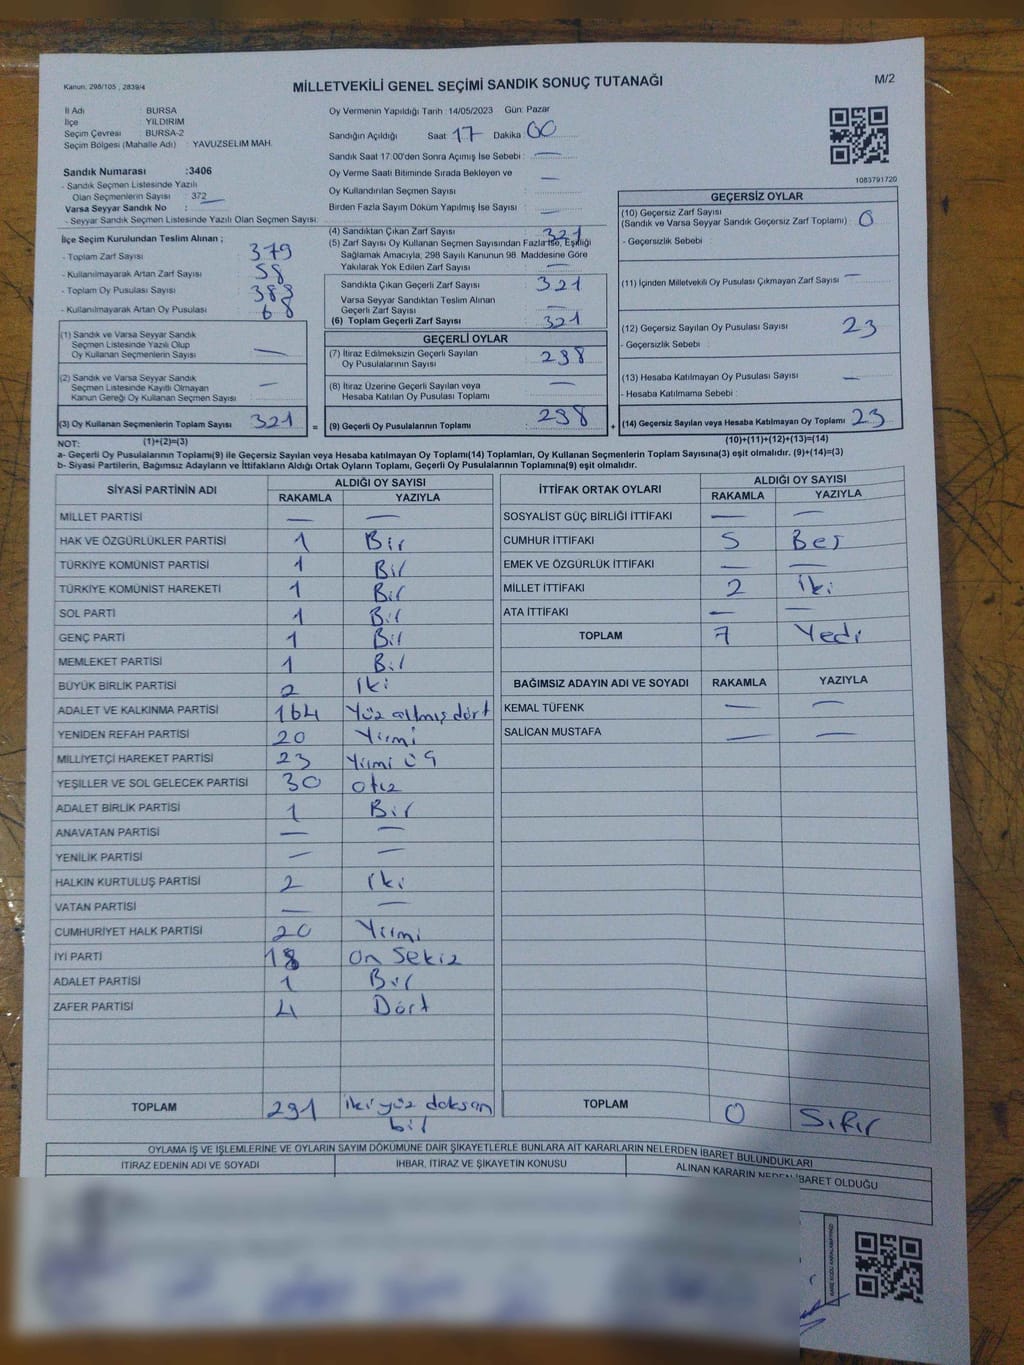 Kanun, 298/105 , 2839/4
MİLLETVEKİLİ GENEL SEÇİMİ SANDIK SONUÇ TUTANAĞI
M/2
İl Adı : BURSA
İlçe : YILDIRIM
Seçim Çevresi : BURSA-2
Seçim Bölgesi (Mahalle Adı) : YAVUZSELIM MAH.
Sandık Numarası :3406
- Sandık Seçmen Listesinde Yazılı
Olan Seçmenlerin Sayısı : 372
Varsa Seyyar Sandık No :
- Seyyar Sandık Seçmen Listesinde Yazılı Olan Seçmen Sayısı:
Oy Vermenin Yapıldığı Tarih : 14/05/2023 Gün: Pazar
Sandığın Açıldığı Saat 17 Dakika 00
Sandık Saat 17:00'den Sonra Açımış İse Sebebi : —
Oy Verme Saati Bitiminde Sırada Bekleyen ve
Oy Kullandırılan Seçmen Sayısı : —
Birden Fazla Sayım Döküm Yapılmış İse Sayısı : —
1083791720
İlçe Seçim Kurulundan Teslim Alınan ;
- Toplam Zarf Sayısı : 379
- Kullanılmayarak Artan Zarf Sayısı : 58
- Toplam Oy Pusulası Sayısı : 383
- Kullanılmayarak Artan Oy Pusulası : 68
(1) Sandık ve Varsa Seyyar Sandık
Seçmen Listesinde Yazılı Olup
Oy Kullanan Seçmenlerin Sayısı : —
(2) Sandık ve Varsa Seyyar Sandık
Seçmen Listesinde Kayıtlı Olmayan
Kanun Gereği Oy Kullanan Seçmen Sayısı : —
(3) Oy Kullanan Seçmenlerin Toplam Sayısı : 321
(4) Sandıktan Çıkan Zarf Sayısı : 321
(5) Zarf Sayısı Oy Kullanan Seçmen Sayısından Fazla İse, Eşitliği
Sağlamak Amacıyla, 298 Sayılı Kanunun 98. Maddesine Göre
Yakılarak Yok Edilen Zarf Sayısı : —
Sandıkta Çıkan Geçerli Zarf Sayısı : 321
Varsa Seyyar Sandıktan Teslim Alınan
Geçerli Zarf Sayısı : —
(6) Toplam Geçerli Zarf Sayısı : 321
GEÇERLİ OYLAR
(7) İtiraz Edilmeksizin Geçerli Sayılan
Oy Pusulalarının Sayısı : 298
(8) İtiraz Üzerine Geçerli Sayılan veya
Hesaba Katılan Oy Pusulası Toplamı : —
= (9) Geçerli Oy Pusulalarının Toplamı : 298 +
GEÇERSİZ OYLAR
(10) Geçersiz Zarf Sayısı
(Sandık ve Varsa Seyyar Sandık Geçersiz Zarf Toplamı) : 0
- Geçersizlik Sebebi :
(11) İçinden Milletvekili Oy Pusulası Çıkmayan Zarf Sayısı : —
(12) Geçersiz Sayılan Oy Pusulası Sayısı : 23
- Geçersizlik Sebebi :
(13) Hesaba Katılmayan Oy Pusulası Sayısı : —
- Hesaba Katılmama Sebebi :
(14) Geçersiz Sayılan veya Hesaba Katılmayan Oy Toplamı 23
NOT: (1)+(2)=(3)
(10)+(11)+(12)+(13)=(14)
a- Geçerli Oy Pusulalarının Toplamı(9) ile Geçersiz Sayılan veya Hesaba katılmayan Oy Toplamı(14) Toplamları, Oy Kullanan Seçmenlerin Toplam Sayısına(3) eşit olmalıdır. (9)+(14)=(3)
b- Siyasi Partilerin, Bağımsız Adayların ve İttifakların Aldığı Ortak Oyların Toplamı, Geçerli Oy Pusulalarının Toplamına(9) eşit olmalıdır.
SİYASİ PARTİNİN ADI
ALDIĞI OY SAYISI
RAKAMLA YAZIYLA
MİLLET PARTİSİ — —
HAK VE ÖZGÜRLÜKLER PARTİSİ 1 Bir
TÜRKİYE KOMÜNİST PARTİSİ 1 Bir
TÜRKİYE KOMÜNİST HAREKETİ 1 Bir
SOL PARTİ 1 Bir
GENÇ PARTİ 1 Bir
MEMLEKET PARTİSİ 1 Bir
BÜYÜK BİRLİK PARTİSİ 2 iki
ADALET VE KALKINMA PARTİSİ 164 Yüz altmış dört
YENİDEN REFAH PARTİSİ 20 Yirmi
MİLLİYETÇİ HAREKET PARTİSİ 23 Yirmi üç
YEŞİLLER VE SOL GELECEK PARTİSİ 30 otuz
ADALET BİRLİK PARTİSİ 1 Bir
ANAVATAN PARTİSİ — —
YENİLİK PARTİSİ — —
HALKIN KURTULUŞ PARTİSİ 2 iki
VATAN PARTİSİ — —
CUMHURİYET HALK PARTİSİ 20 Yirmi
İYİ PARTİ 18 On Sekiz
ADALET PARTİSİ 1 Bir
ZAFER PARTİSİ 4 Dört
TOPLAM 291 iki yüz doksan
bir
İTTİFAK ORTAK OYLARI
ALDIĞI OY SAYISI
RAKAMLA YAZIYLA
SOSYALİST GÜÇ BİRLİĞİ İTTİFAKI — —
CUMHUR İTTİFAKI 5 Beş
EMEK VE ÖZGÜRLÜK İTTİFAKI — —
MİLLET İTTİFAKI 2 iki
ATA İTTİFAKI — —
TOPLAM 7 Yedi
BAĞIMSIZ ADAYIN ADI VE SOYADI RAKAMLA YAZIYLA
KEMAL TÜFENK — —
SALİCAN MUSTAFA — —
TOPLAM 0 Sıfır
OYLAMA İŞ VE İŞLEMLERİNE VE OYLARIN SAYIM DÖKÜMÜNE DAİR ŞİKAYETLERLE BUNLARA AİT KARARLARIN NELERDEN İBARET BULUNDUKLARI
İTİRAZ EDENİN ADI VE SOYADI
İHBAR, İTİRAZ VE ŞİKAYETİN KONUSU
ALINAN KARARIN NEDEN İBARET OLDUĞU